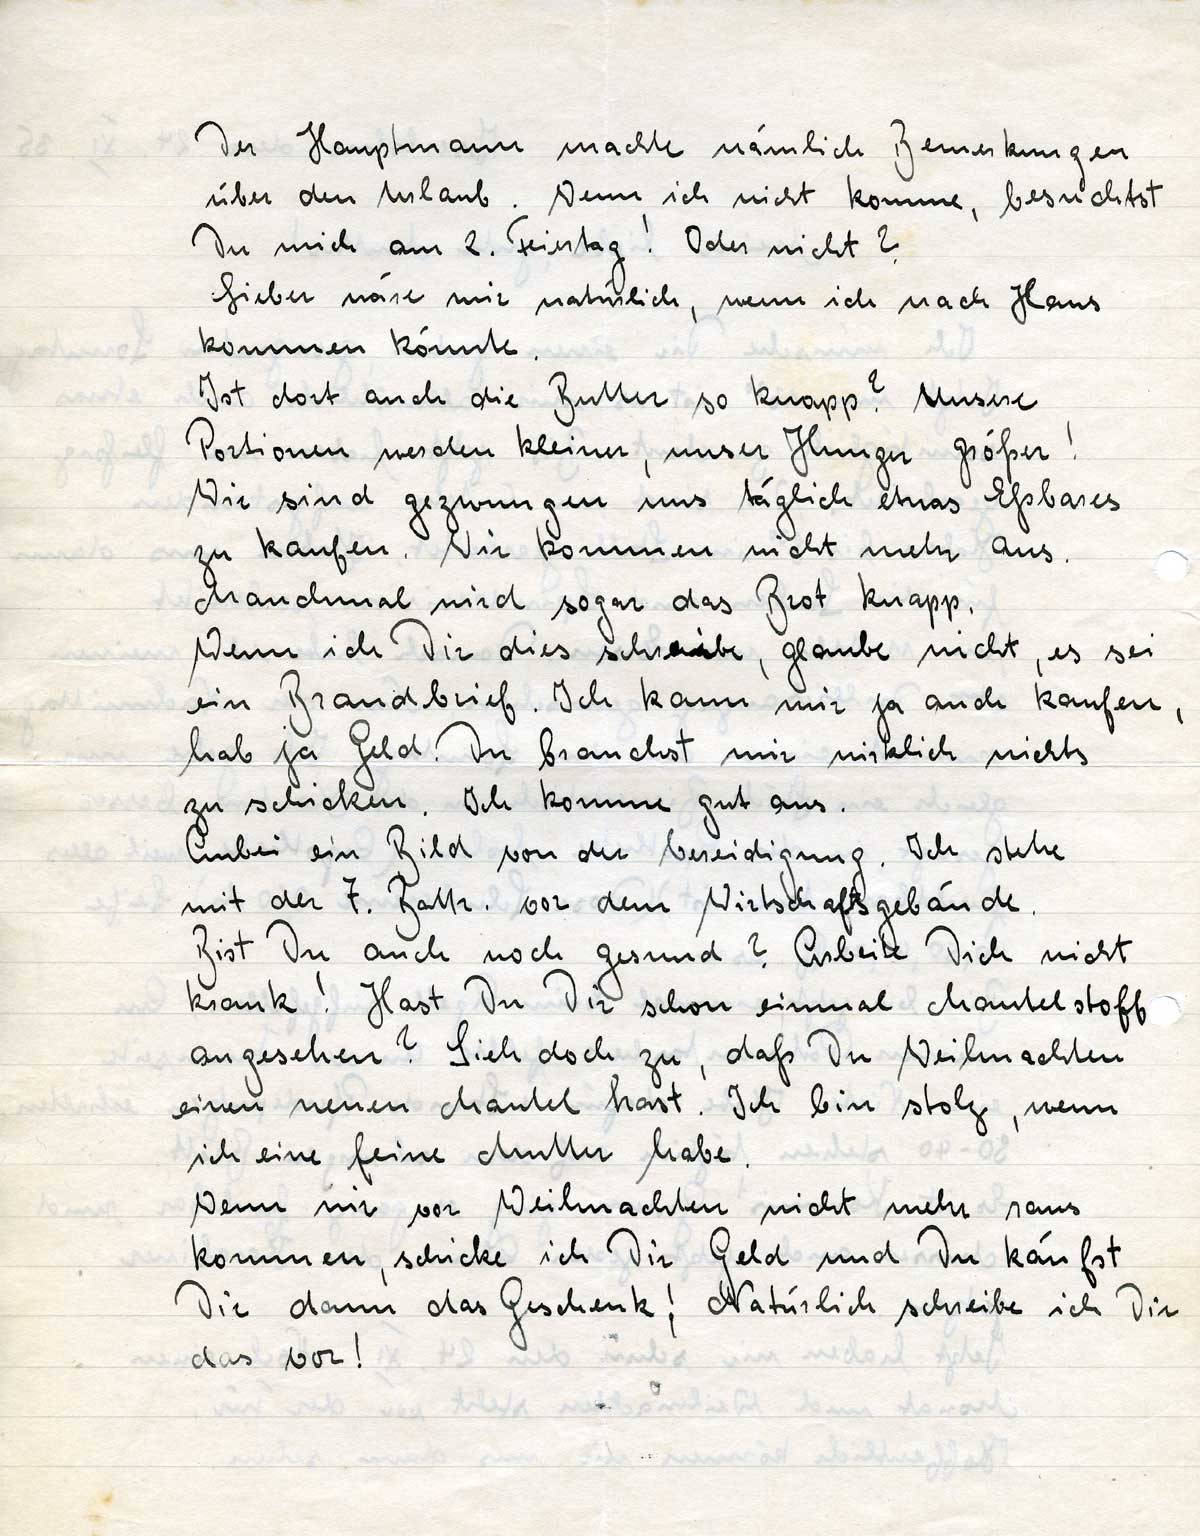 Der Hauptmann machte nämlich Bemerkungen
über den Urlaub. Wenn ich nicht komme, besuchtst
Du mich am 2. Feiertag! Oder nicht?
Lieber wäre mir natürlich, wenn ich nach Haus
kommen könnte.
Ist dort auch die Butter so knapp? Unsere
Portionen werden kleiner, unser Hunger größer!
Wir sind gezwungen uns täglich etwas Eßbares
zu kaufen. Wir kommen nicht mehr aus.
Manchmal wird sogar das Brot knapp.
Wenn ich Dir dies schreibe, glaube nicht, es sei
ein Brandbrief. Ich kann mir ja auch kaufen,
hab ja Geld. Du brauchst mir wirklich nichts
zu schicken. Ich komme gut aus.
Anbei ein Bild von der Vereidigung. Ich stehe
mit der 7. Battr. vor dem Wirtschaftsgebäude.
Bist Du auch noch gesund? Arbeite Dich nicht
krank! Hast Du Dir schon einmal Mantelstoff
angesehen? Sieh doch zu, daß Du Weihnachten
einen neuen Mantel hast. Ich bin stolz, wenn
ich eine feine Mutter habe.
Wenn wir vor Weihnachten nicht mehr raus
kommen, schicke ich Dir Geld und Du käufst
Dir dann das Geschenk! Natürlich schreibe ich Dir
das vor!